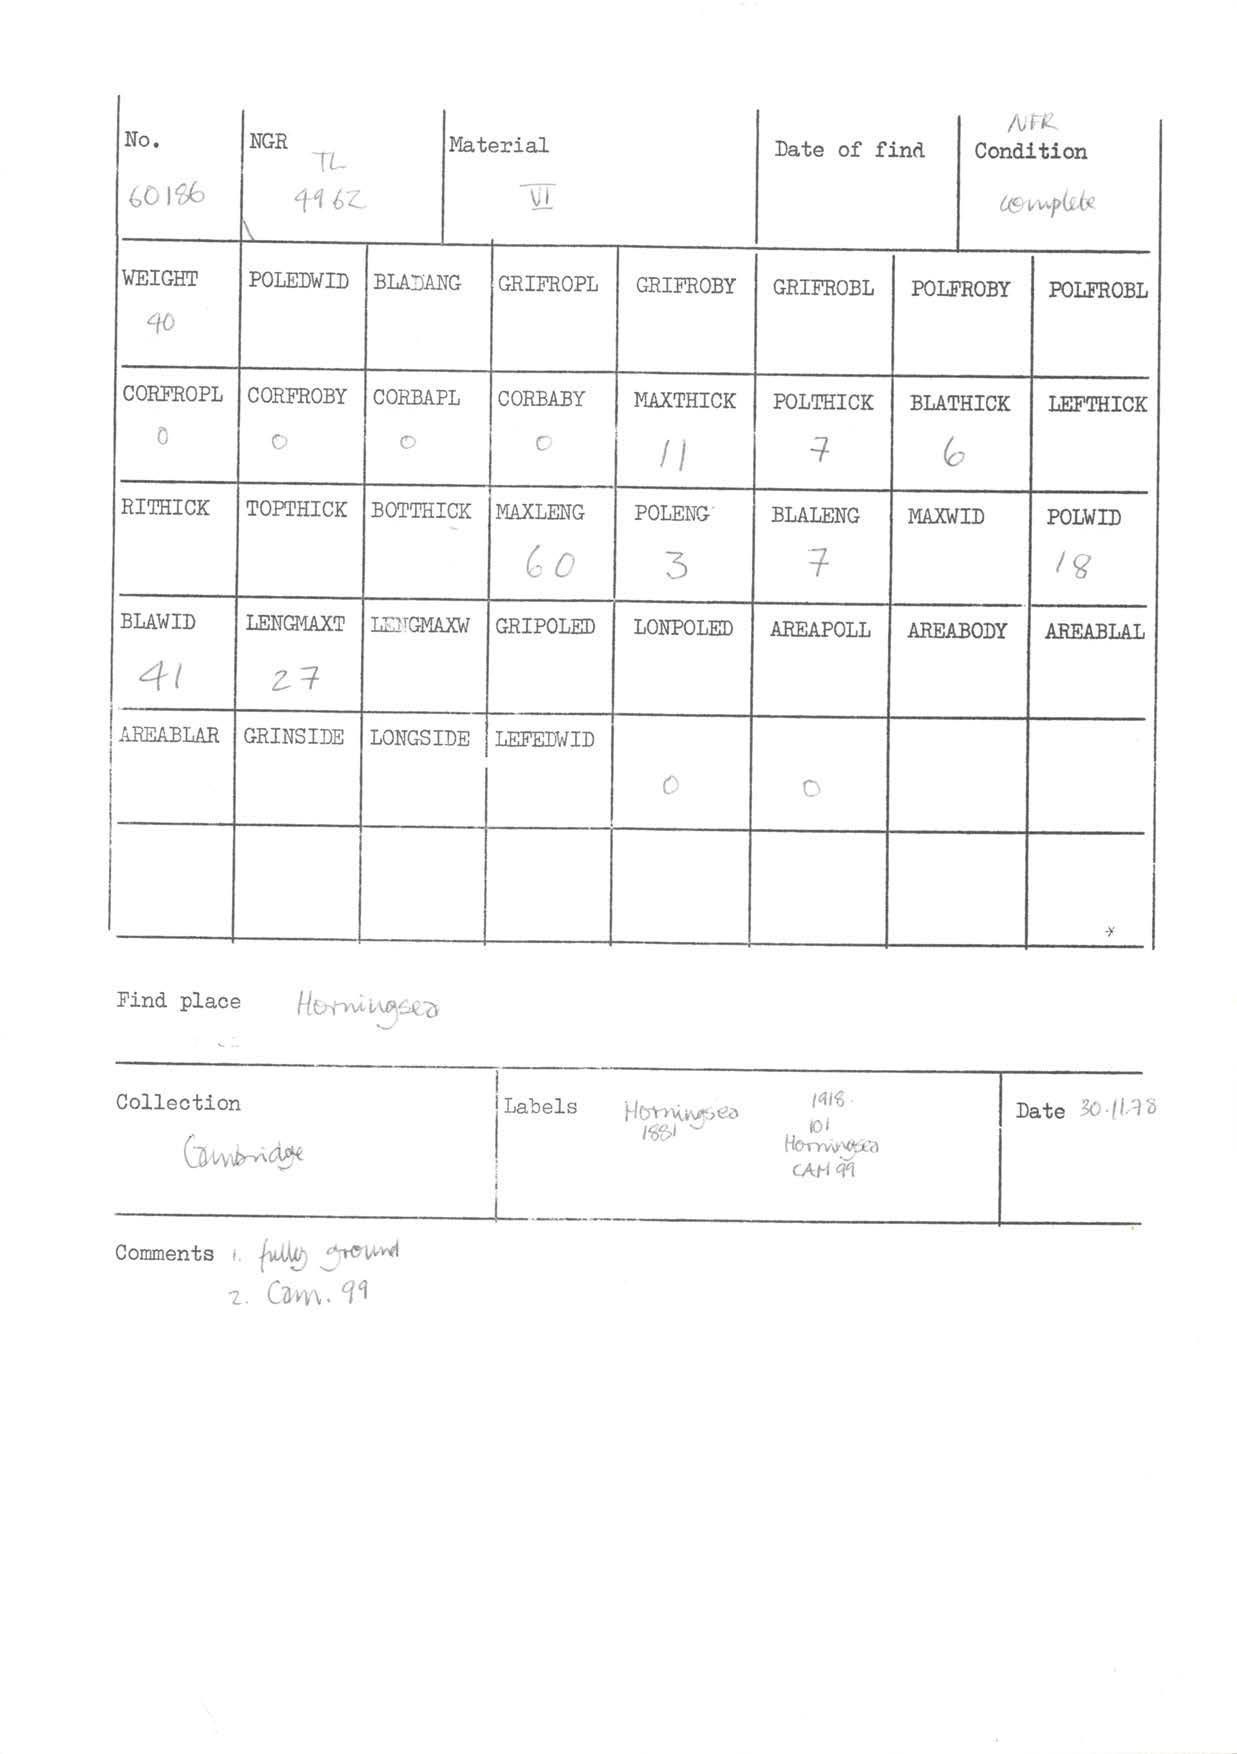 No. NGR Material Date of find NFR Condition
60186 TL 4962 VI complete
WEIGHT POLEDWID BLADANG GRIFROPL GRIFROBY GRIFROBL POLFROBY POLFROBL
40
CORFROPL CORFROBY CORBAPL CORBABY MAXTHICK POLTHICK BLATHICK LEFTHICK
0 0 0 0 11 7 6
RITHICK TOPTHICK BOTTHICK MAXLENG POLENG BLALENG MAXWID POLWID
60 3 7 18
BLAWID LENGMAXT LENGMAXW GRIPOLED LONPOLED AREAPOLL AREABODY AREABLAL
41 27
AREABLAR GRINSIDE LONGSIDE LEFEDWID
0 0
Find place Horningsea
Collection Cambridge
Labels Horningsea
1881
1918.
101
Horningsea
CAM 99
Date 30.11.78
Comments 1. fully ground
2. Cam. 99